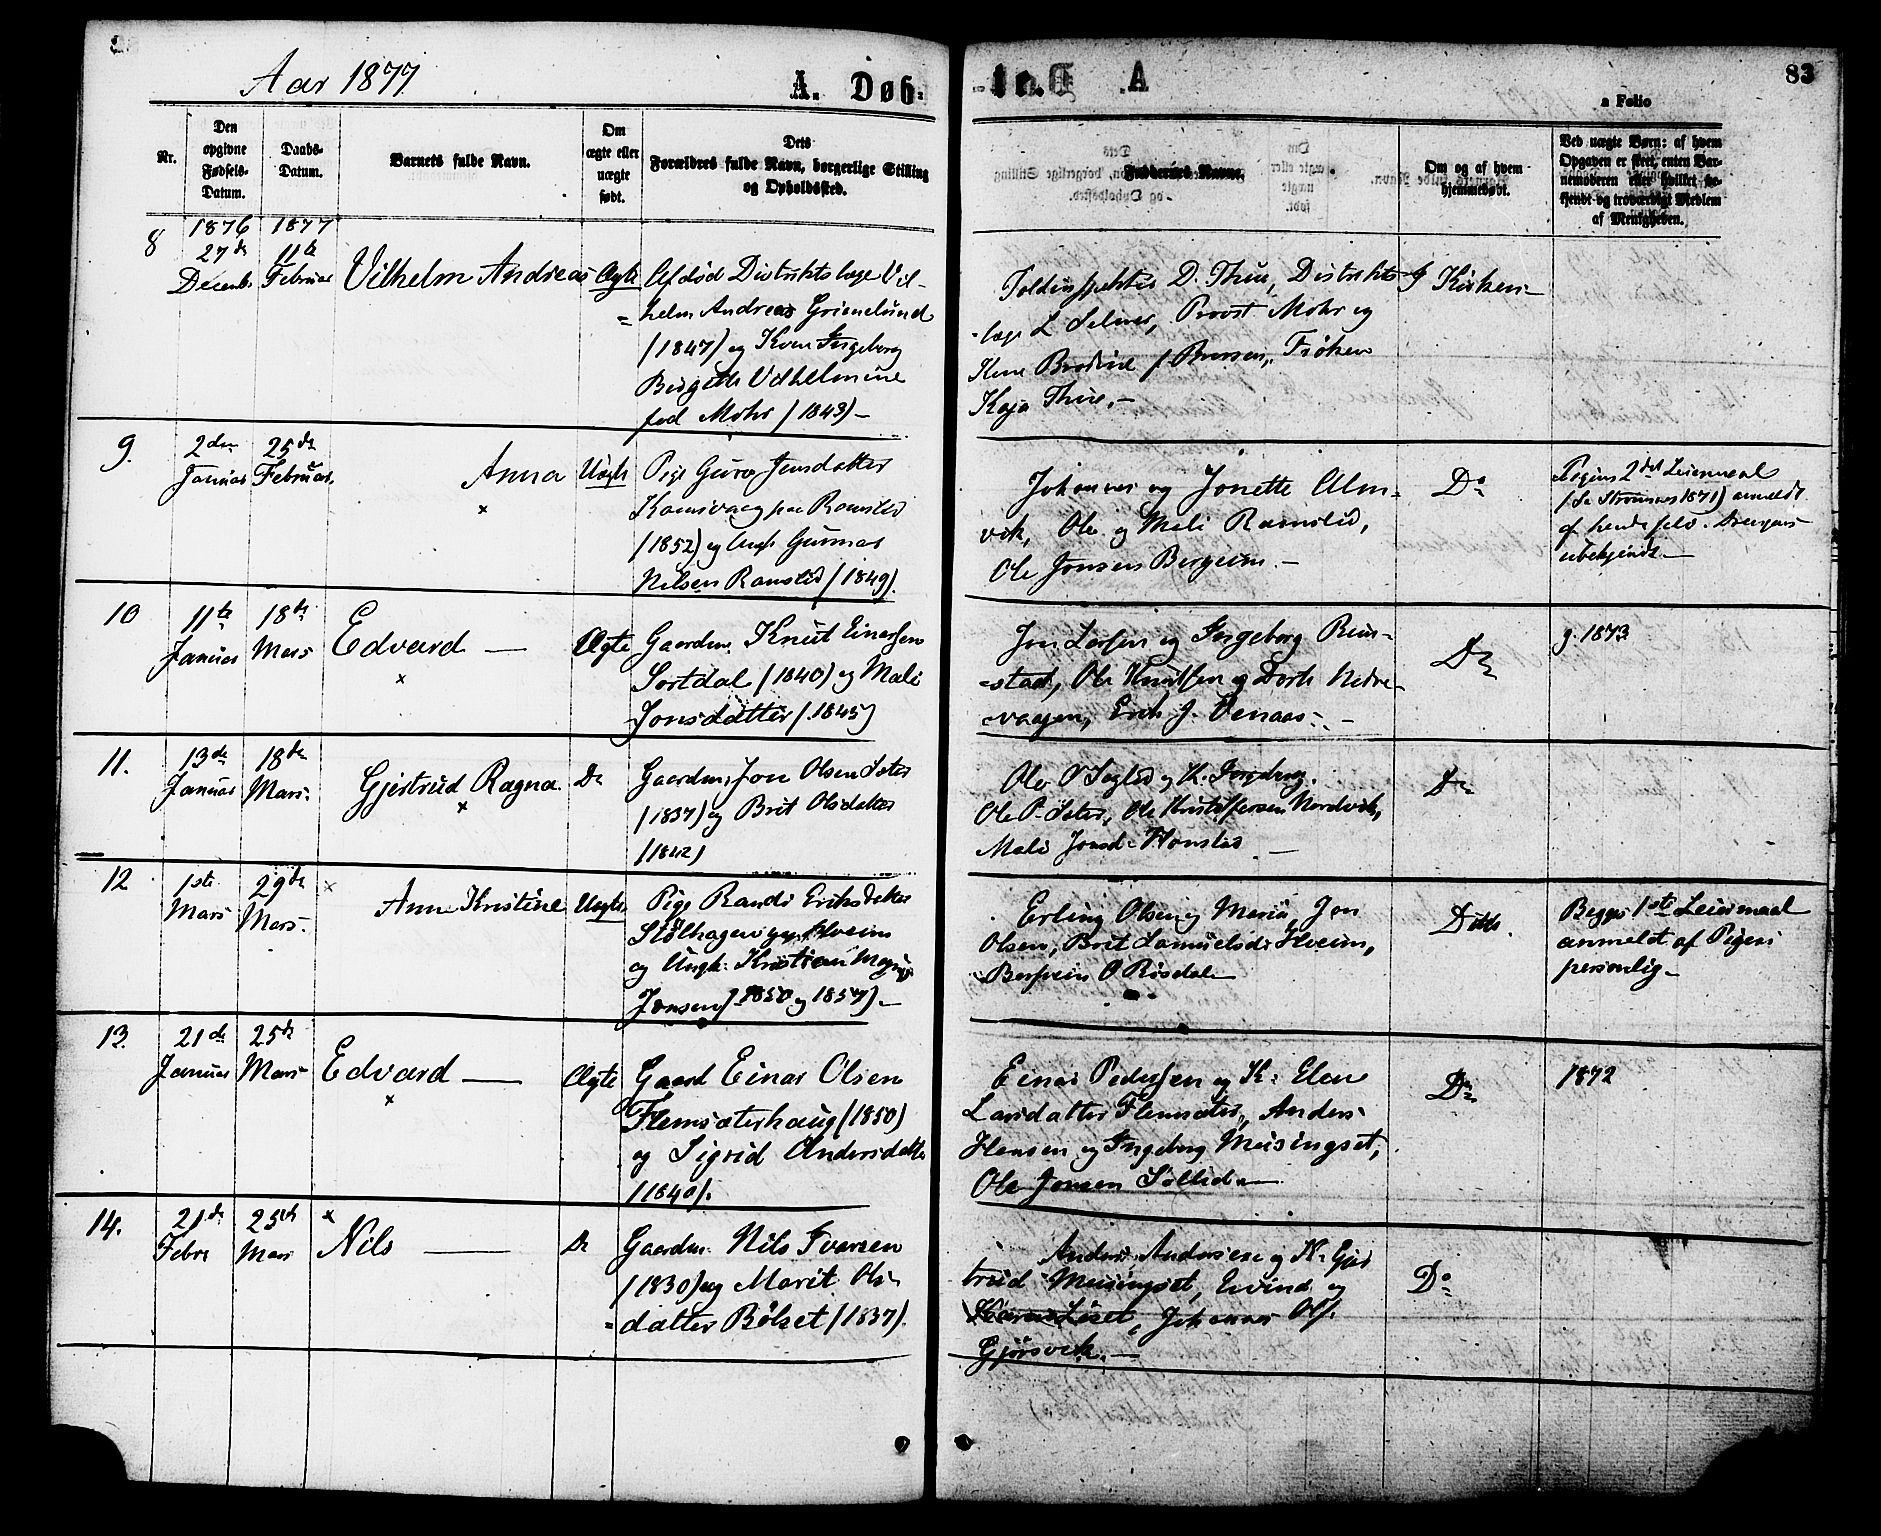 Aar 1877
A. Døb-
te. A
83
a Folio
Nr.
Den
opgivne
Fødsels-
Datum.
Daabs-
Datum.
Barnets fulde Navn.
Om
ægte eller
uægte
født.
Dets
Forældres fulde Navn, borgerlige Stilling
og Opholdssted.
Faddernes Navne.
Om og af hvem
hjemmedøbt.
Ved uægte Børn: af hvem
Opgaven er skeet, enten Bar-
nemoderen eller hvilket be-
kjendt og troværdigt Medlem
af Menigheden.
8
1876
27de
Decembr
1877
11te
Februar
Vilhelm Andreas
Ægte
Afdød Distriktslæge Vil-
helm Andreas Grønelund
(1847) og Kone Ingeborg
Birgitte Vilhelmine
fød Mohr (1843) -
Toldinspektør D. Thue, Distrikts-
læge L Selmer, Provst Mohr og
Kaja Thue. -
I Kirken -
9.
2den
Januar
25de
Februar.
Anna
Uægte
Pige Guro Jensdatter
paa Ramslid
(1852) og Ungk Gunnar
Nilsen Ramslid (1849).
Johannes og Jonette Alm-
vik, Ole og Mali Ramslid,
Ole Jonsen Bergeim. -
Do
Pigens 2det Leiermaal
1871) anmeldt
af hende selv.
ubekjendt -
10
11te
Januar
18de
Mars
Edvard -
Ægte
Gaardm. Knut Einarsen
Sortdal (1840) og Mali
Jonsdatter (1845)
Jon Larsen og Ingeborg Rim-
stad, Ole Knutsen og Dorte Nedre-
vaagen, Erik J. Venaas. -
Do
g. 1873
11.
13de
Januar
18de
Mars.
Gjertrud Ragna
Do
Gaardm. Jon Olsen Sæter
(1837) og Brit Olsdatter
(1842)
Ole O Soglid og K. Ingeborg.
Ole P. Sæter, Ole Kristoffersen Nordvik,
Mali Jonsd. Honstad -
Do
12
1ste
Mars
29de
Mars.
Anne Kristine
Uægte
Pige Randi Eriksdatter
Stølhagen
og Ungk. Kristian Magnus
Jonsen (1850 og 1857). -
Erling Olsen og Maria, Jon
Olsen, Brit Samuelsd. Hveim,
O Røsdal -
Ditto.
Begges 1ste Leiermaal
anmeldt af Pigen
personlig -
13.
21de
Januar
25de
Mars
Edvard -
Ægte
Gaard Einar Olsen
Flemsæterhaug (1850)
og Sigrid Andersdatter
(1840).
Einar Pedersen og K. Elen
Larsdatter Flemsæter, Anders
Hansen og Ingeborg Meisingset,
Ole Jonsen Sollid -
Do
1872
14.
21de
Febr
25de
Mars
Nils -
Do
Gaardm. Nils Iversen
(1830) og Marit Ols-
datter Bølset (1837).
Anders Andersen og K. Gjer
trud Meisingset, Eivind og
Karen Liset, Johannes Ols.
Gjørsvik. -
Do